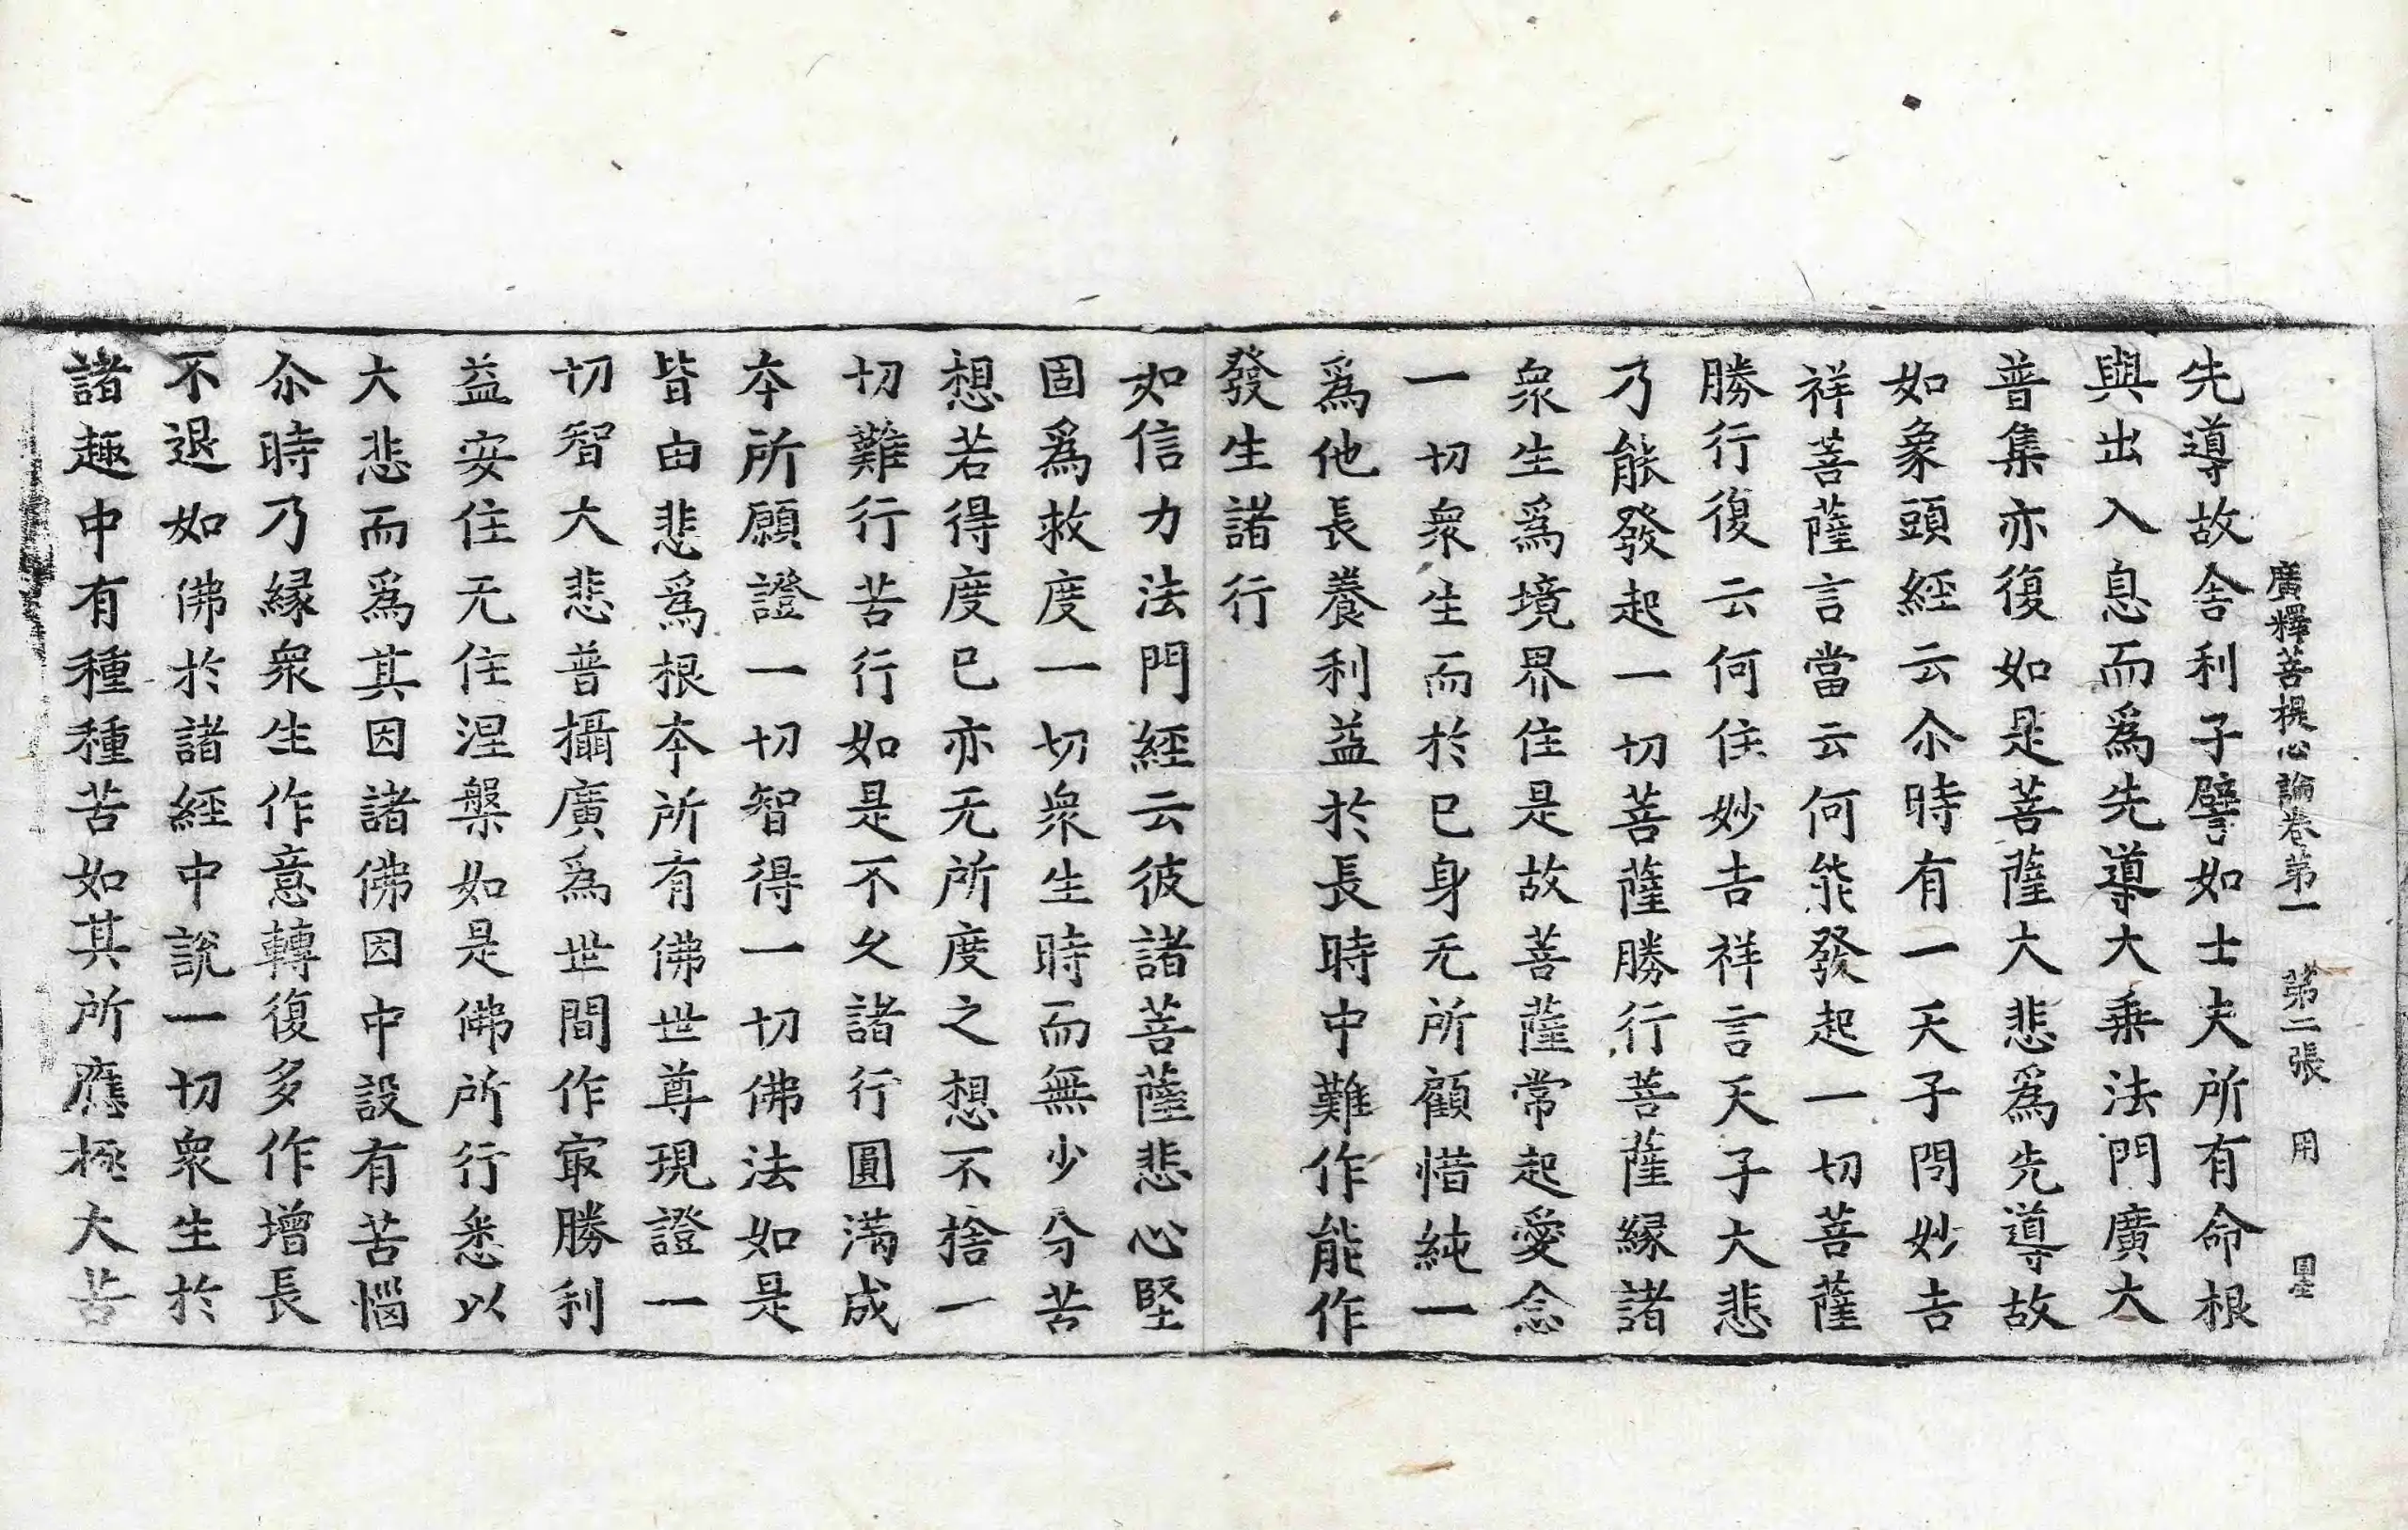 廣釋菩提心論卷第一 第二張 用
先導故舍利子譬如士夫所有命根
與出入息而爲先導大乘法門廣大
普集亦復如是菩薩大悲爲先導故
如象頭經云尒時有一天子問妙吉
祥菩薩言當云何能發起一切菩薩
勝行復云何住妙吉祥言天子大悲
乃能發起一切菩薩勝行菩薩縁諸
衆生爲境界住是故菩薩常起愛念
一切衆生而於已身无所顧惜純一
爲他長養利益於長時中難作能作
發生諸行
如信力法門經云彼諸菩薩悲心堅
固爲救度一切衆生時而無少分苦
想若得度已亦无所度之想不捨一
切難行苦行如是不久諸行圓滿成
夲所願證一切智得一切佛法如是
皆由悲爲根夲所有佛世尊現證一
切智大悲普攝廣爲世間作㝡勝利
益安住无住涅槃如是佛所行悉以
大悲而爲其因諸佛因中設有苦惱
尒時乃縁衆生作意轉復多作增長
不退如佛於諸經中說一切衆生於
諸趣中有種種苦如其所應極大苦